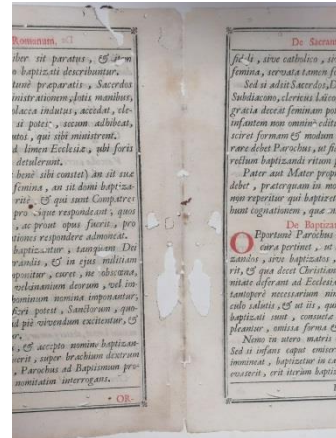 Romanum,
iber sit paratus, & item
o baptizati describuntur.
tunc præparatis, Sacerdos
inistrationem, lotis manibus,
olacea indutus, accedat, cle-
i potest, secum adhibeat,
utos, qui sibi ministrent.
d limen Ecclesiæ, ubi foris
detulerunt.
benè sibi constet) an sit suæ
femina, an sit domi baptiza-
ritè, & qui sunt Compatres
pro eoque respondeant, quos
ac prout opus fuerit, pro
tiones respondere admoneat.
baptizatur, tamquam Dei
randis, & in ejus militiam
oponitur, curet, ne obscœna,
vel inanium deorum, vel im-
hominum nomina imponantur,
fieri potest, Sanctorum, quo-
d piè vivendum excitentur, &
r,
& accepto nomine baptizan-
uerit, super brachium dextrum
, Parochus ad Baptismum pro-
nominatim interrogans.
OR-
De Sacram
fideli, sive catholico, siv
femina, servata tamen fo
Sed si adsit Sacerdos, D
Subdiacono, clericus laico
gratia deceat feminam pot
infantem non omninò edit
sciret formam & modum
rare debet Parochus, ut fid
rectum baptizandi ritum p
Pater aut Mater propr
debet, præterquam in mor
non reperitur qui baptizet
bunt cognationem, quæ
De Baptizan
OPportunè Parochus
cura pertinet, ut
zandos, sive baptizatos,
rit, & qua decet Christian
nitate deferant ad Ecclesia
tantoperè necessarium nim
culo salutis, & ut iis, qui
baptizati sunt, consuetæ
pleantur, omissa forma &
Nemo in utero matris
Sed si infans caput emiser
immineat, baptizetur in ca
evaserit, erit iterum baptiz